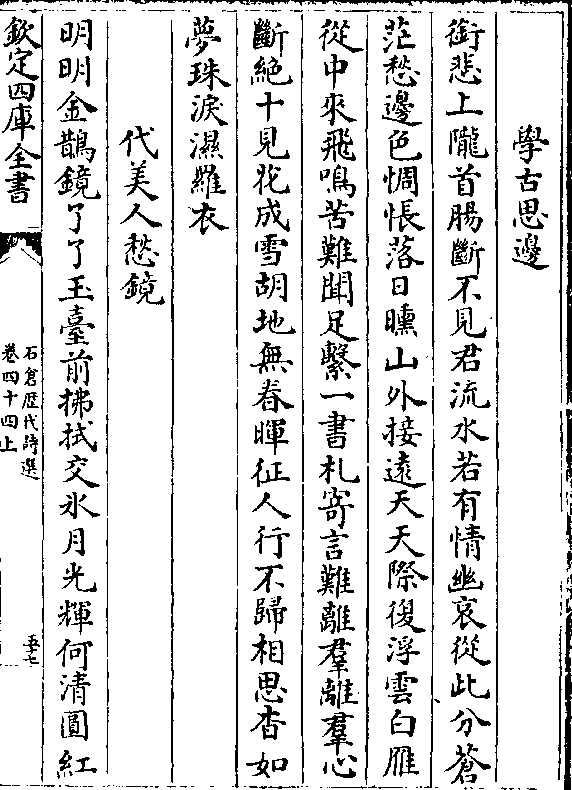 學古思邊
銜悲上隴首腸斷不見君流水若有情幽哀從此分蒼
茫愁邊色惆悵落日曛山外接遠天天際復浮雲白雁
從中來飛鳴苦難聞足繫一書札寄言難離羣離羣心
斷絶十見花成雪胡地無春暉征人行不歸相思杳如
夢珠淚濕羅衣
代美人愁鏡
明明金鵲鏡了了玉臺前拂拭交氷月光輝何清圓紅
欽定四庫全書
石倉歴代詩選
卷四十四上
五十七